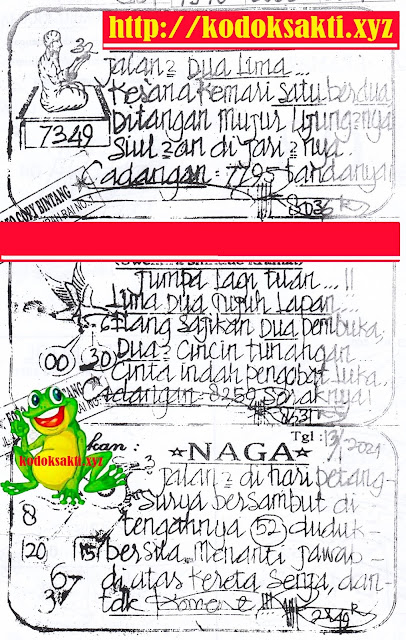 http://kodoksakti.xyz
32
7349
jalan2 Dua Lima...
Kesana Kemari satu berdua
Ditangan mujur Ujung2nya
Siul2an di jari2nya
adangan = 7295 tandanya
COPY BINTANG
Jumpa lagi tuan...!!
Lima Dua Tujuh Lapan...
Elang Sajikan Dua pembuka,
Dua2 cincin tunangan
Cinta indah pengobat luka..
adangan = 8259
00
30
kodoksakti.xyz
kan :
☆NAGA☆
Tgl : 13/ 2021
jalan2 di hari petang-
Surya bersambut di
tengahnya (52) duduk-
bersila. Menanti jawap-
di atas kereta Senja, dan-
tdk
3
8
120
15
6
3